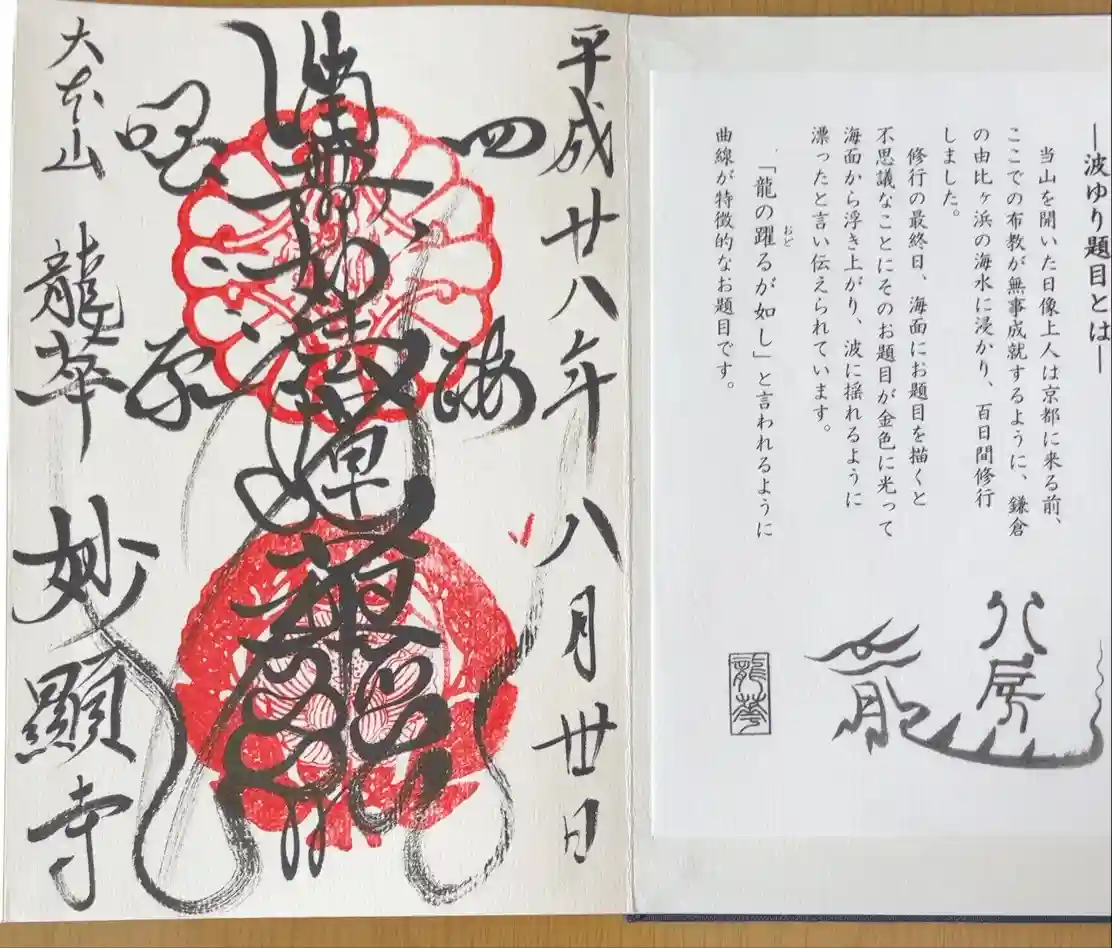 ―波ゆり題目とは―
当山を開いた日像上人は京都に来る前、
ここでの布教が無事成就するように、鎌倉
の由比ヶ浜の海水に浸かり、百日間修行
しました。
修行の最終日、海面にお題目を描くと
不思議なことにそのお題目が金色に光って
海面から浮き上がり、波に揺れるように
漂ったと言い伝えられています。
「龍の躍るが如し」と言われるように
おど
曲線が特徴的なお題目です。
龍華
平成廿八年八月卅日
四海
南無妙法蓮華経
大本山 龍華 妙顕寺